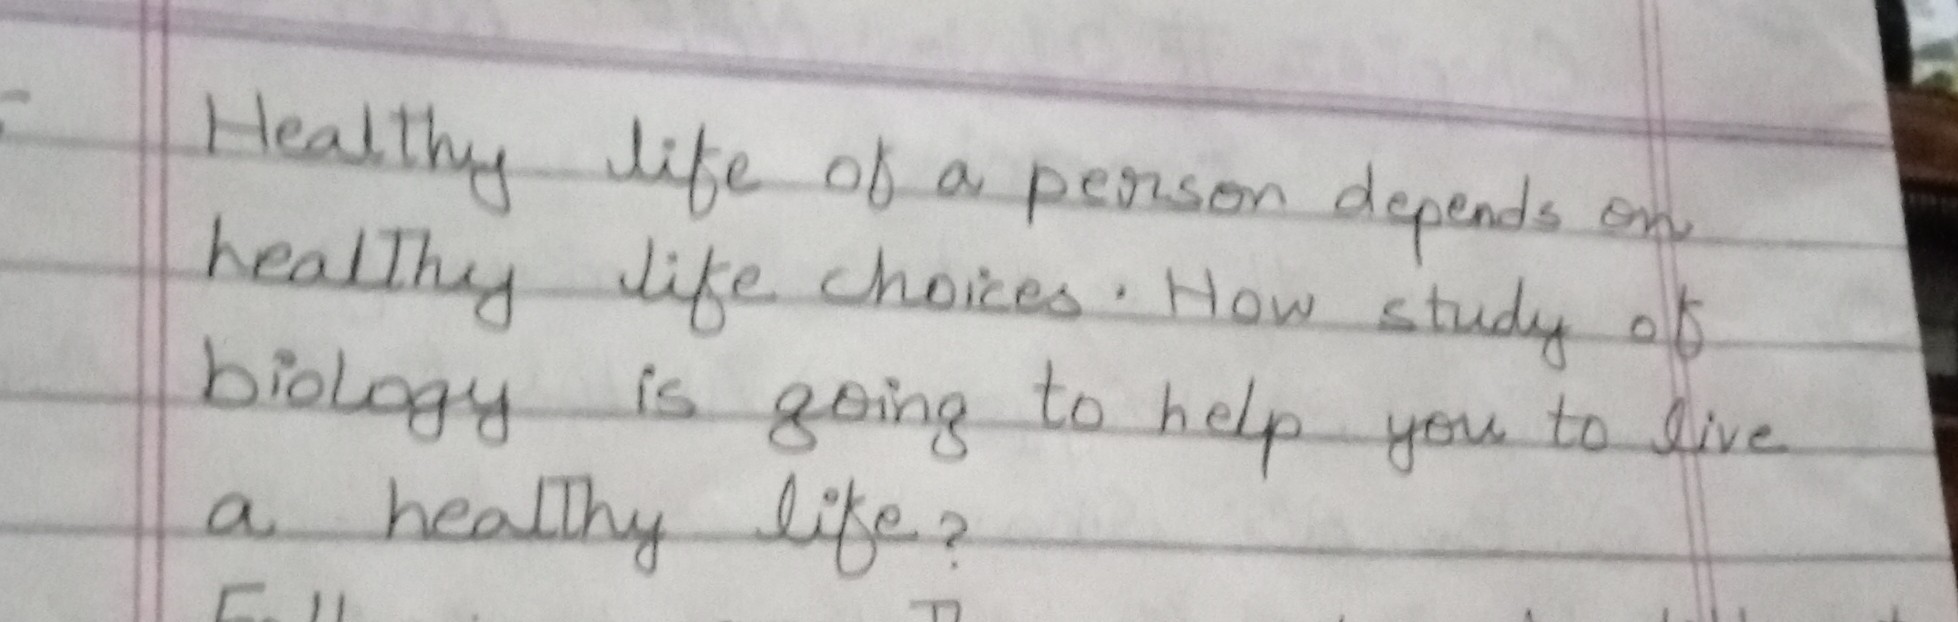 Healthy life of a person depends on
healthy life choices. How study of
biology is going to help you to live
a healthy life?